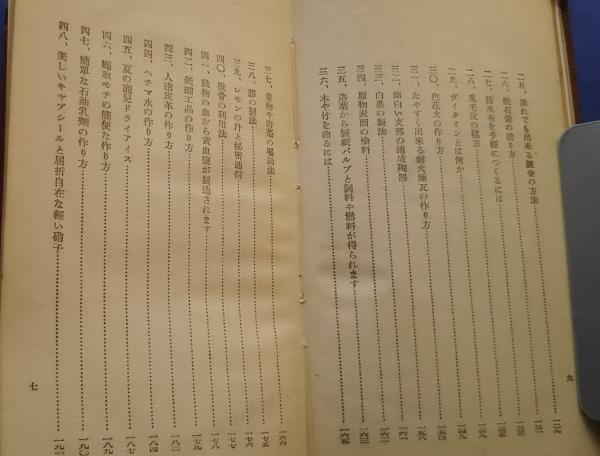 二五、誰れでも出来る鍍金の方法 一二九
二六、焼石膏の造り方 一三一
二七、防水布を手軽につくるには
二八、兎毛皮の鞣方
二九、ヴィタミンとは何か 一四九
三〇、色花火の作り方 一五四
三一、たやすく出来る耐火煉瓦の作り方 一五六
三二、面白い支那の速成陶器 一六一
三三、白墨の製法 一六二
三四、履物表面の塗料 一六三
三五、落葉から製紙パルプと飼料や燃料が得られます
三六、木や竹を曲るには 一六五
六
三七、果物や野菜の罐詰法 一六六
三八、膠の製法 一七五
三九、レモンの汁と秘密通信 一七六
四〇、獣骨の利用法 一七七
四一、動物の血から黄血塩が製造されます 一七八
四二、紙細工品の作り方 一七九
四三、人造皮革の作り方 一八二
四四、ヘチマ水の作り方 一八四
四五、夏の寵児ドライアイス 一八七
四六、蠅取モチの簡便な作り方 一八九
四七、簡単な石油乳剤の作り方 一九〇
四八、美しいキャプシールと屈折自在な軽い硝子 一九一
七